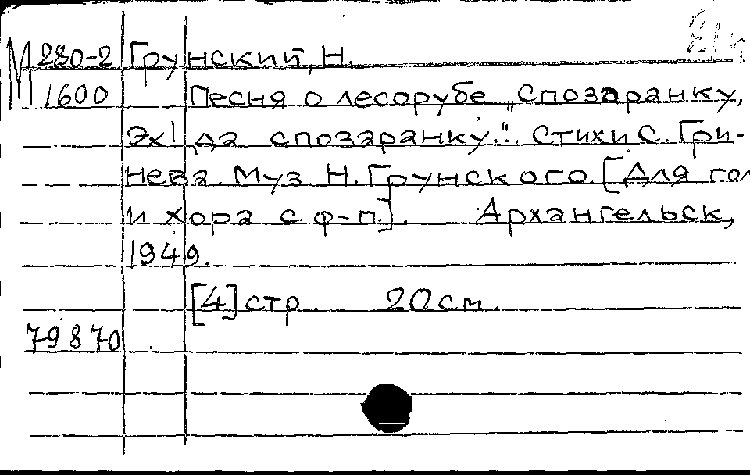 М 280-2 Грунский, Н.
1600 Песня о лесорубе „Спозаранку,
Эх! да спозаранку.". Стихи С. Гри-
нева. Муз Н. Грунского. [Для гол
и хора с ф-п]. Архангельск,
1949.
[4] стр 20 см
79870